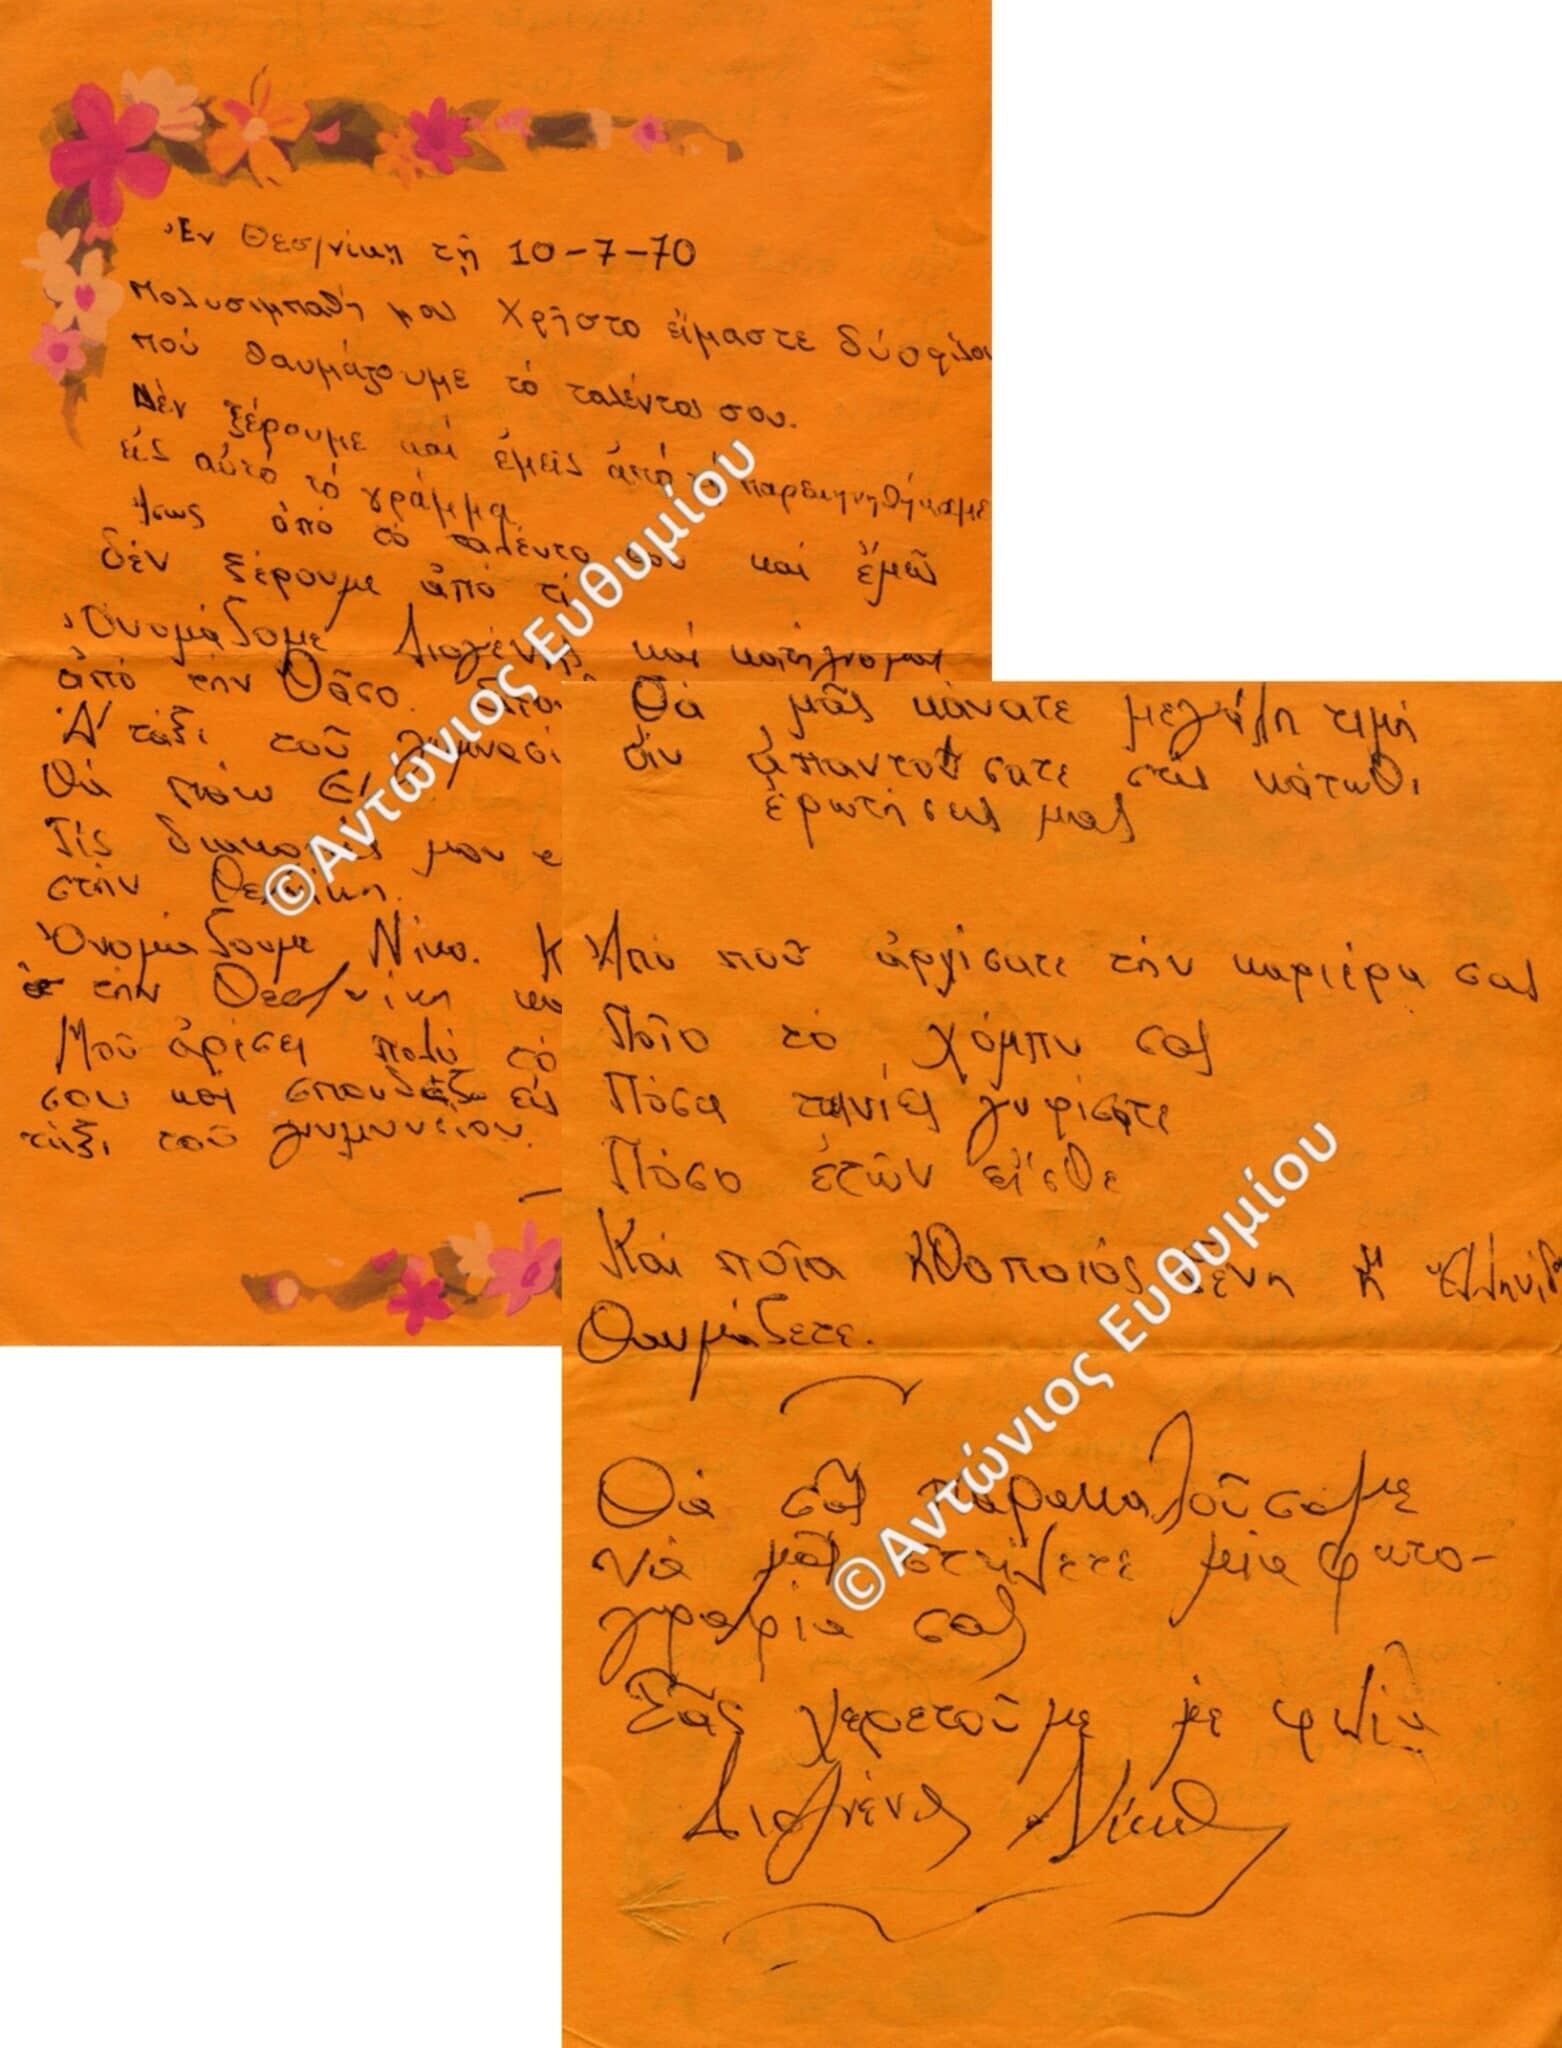 Ἐν Θεσ/νίκῃ τῇ 10-7-70
Πολυσιμπαθή μου Χρῆστο εἴμαστε δύο φίλοι
πού θαυμάζουμε τό ταλέντο σου.
Δέν ξέρουμε καί ἐμεῖς ἀπό τί παρεκινηθήκαμε
εἰς αὐτό τό γράμμα
Ἴσως ἀπό τό ταλέντο σου καί
δέν ξέρουμε ἀπό τί
Ὀνομάζομε Διογένης καί κατάγομαι
ἀπό τήν Θάσο.
Α' τάξι τοῦ
Θά πάω
Τίς διακοπές μου
στήν Θεσ/νίκη.
Ὀνομάζουμε Νίκο. Κ
τήν Θεσ/νίκη κα
Μοῦ ἀρέσει πολύ τό
σου καί σπουδάζω εἰς
τάξι τοῦ γυμνασίου.
Θά μᾶς κάνατε μεγάλη τιμή
ἄν ἀπαντούσατε στίς κάτωθι
ἐρωτήσεις μας
Ἀπό ποῦ ἀρχίσατε τήν καριέρα σας
Ποῖο τό χόμπυ σας
Πόσες ταινίες γυρίσατε
Πόσο ἐτῶν εἶσθε
Καί ποῖα ἠθοποιός ξένη ἤ Ἑλληνίδα
θαυμάζετε.
Θά σᾶς παρακαλούσαμε
νά μᾶς στείλετε μία φωτο-
γραφία σας
Σᾶς χερετοῦμε μέ φιλία
Διογένης Νίκος
©Αντώνιος Ευθυμίου
©Αντώνιος Ευθυμίου